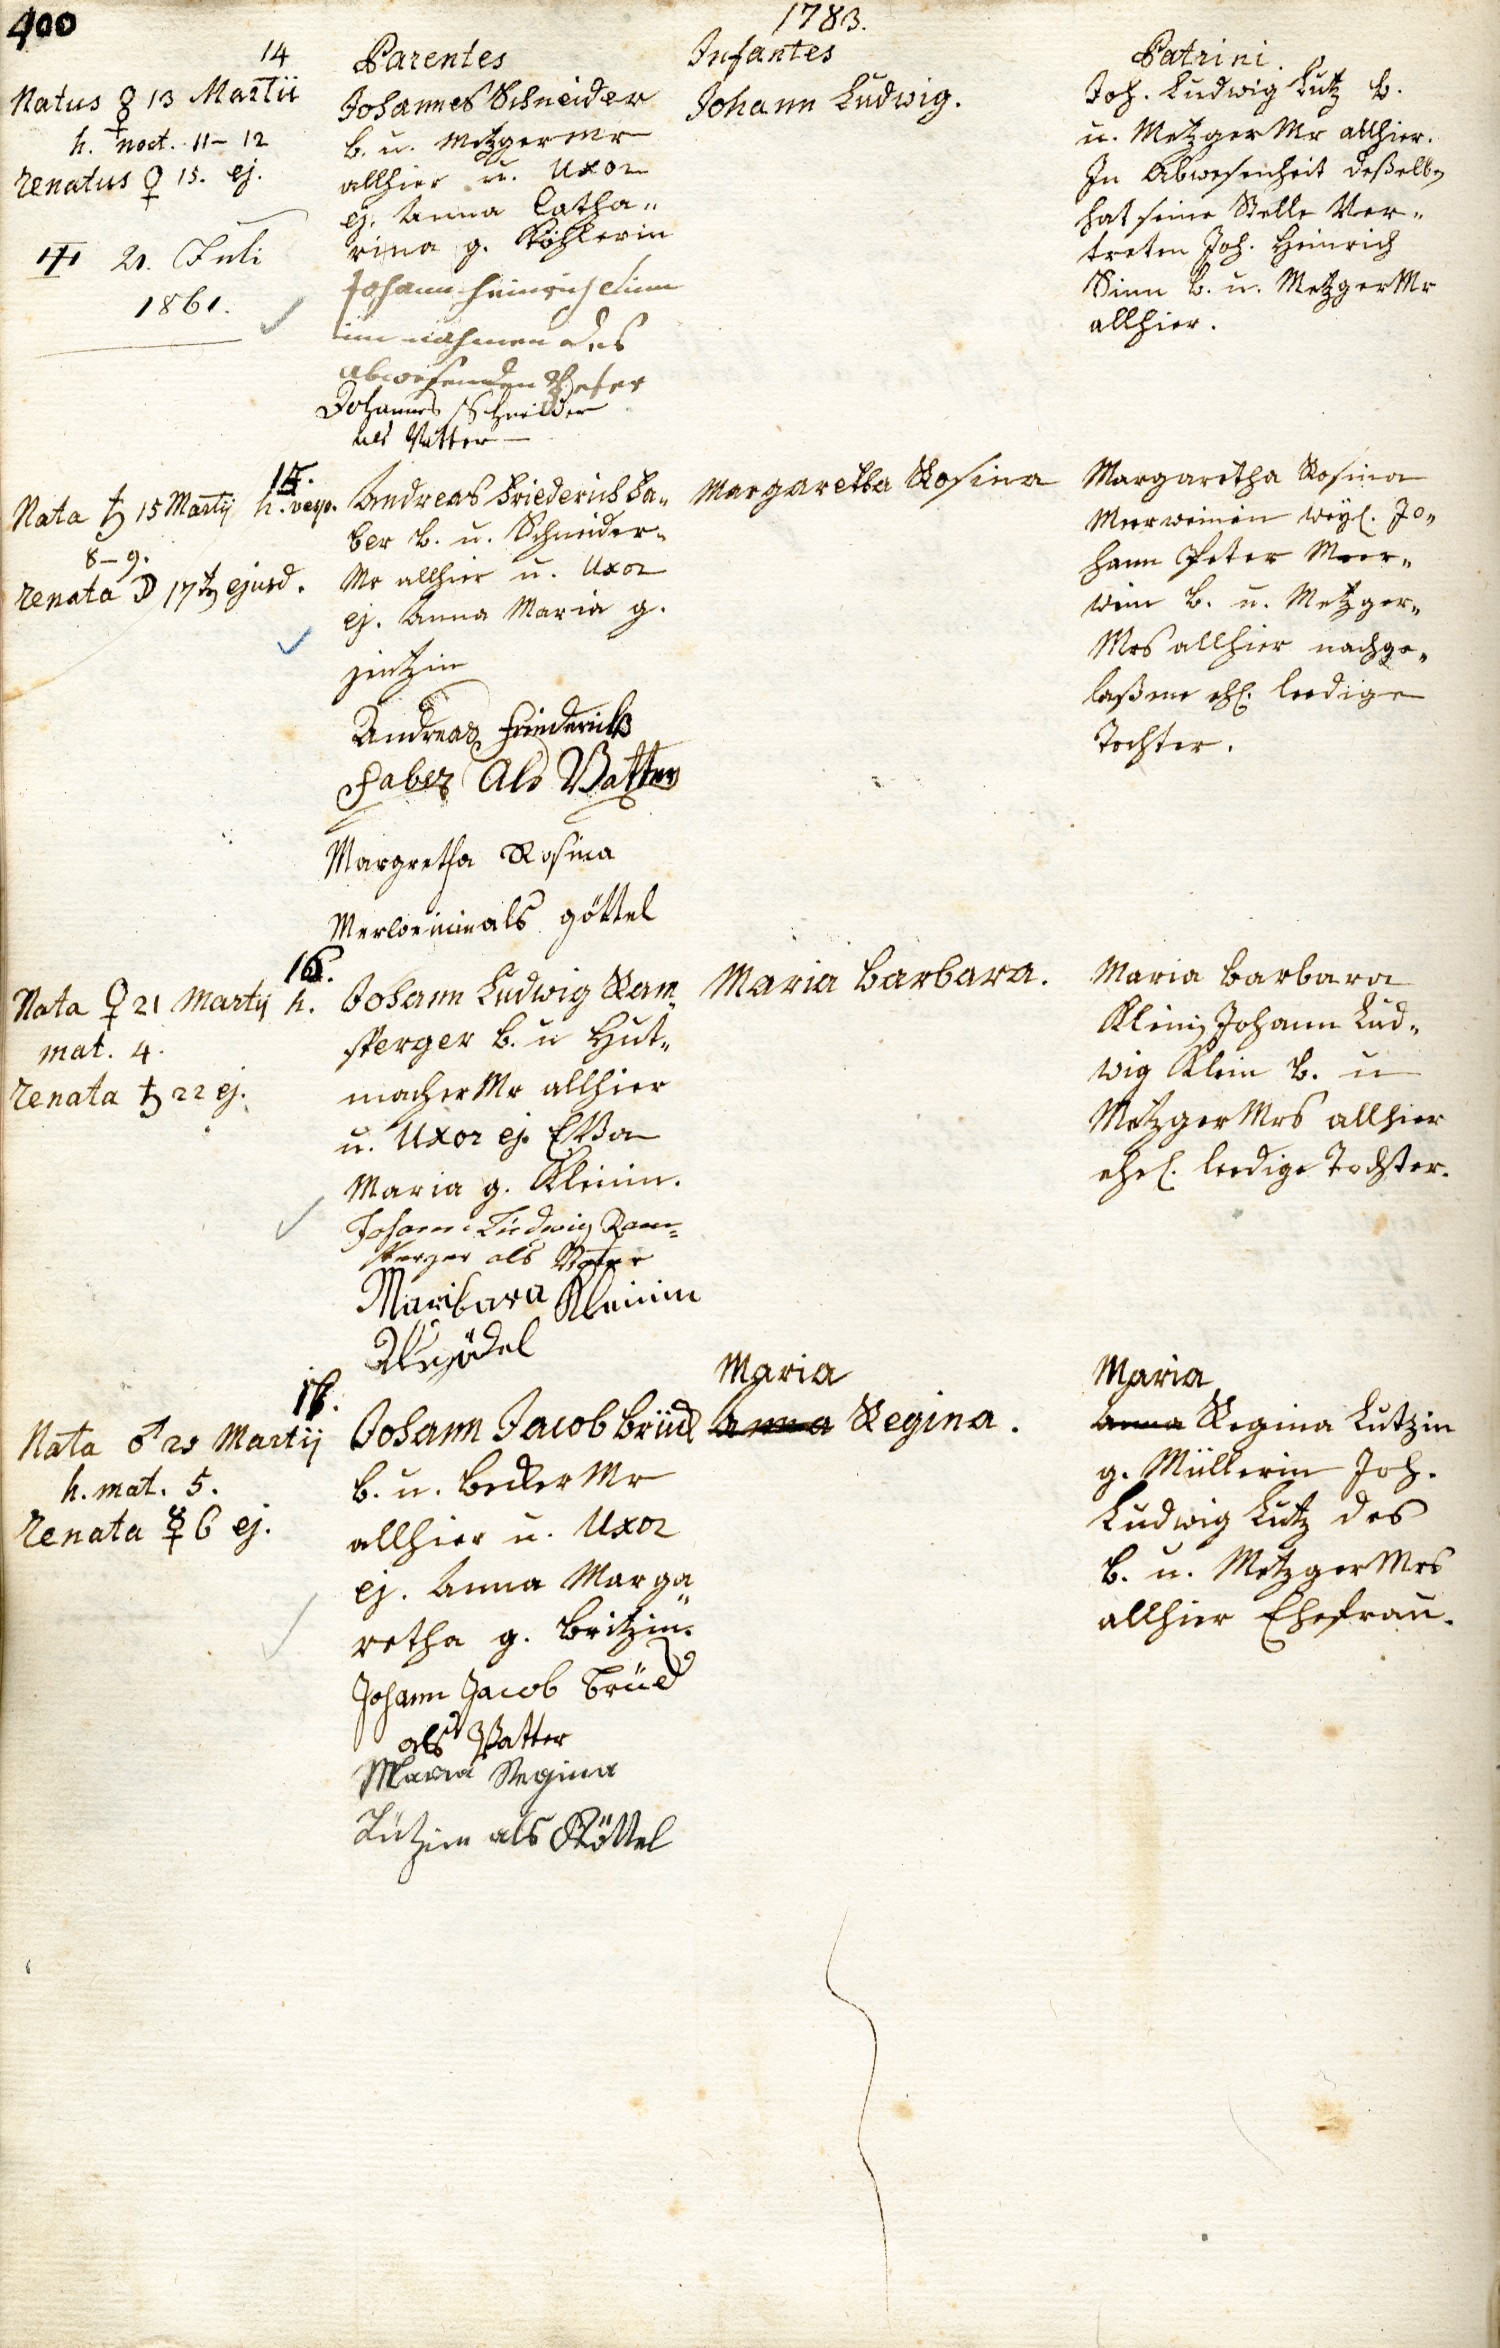 400
1783.
14
Parentes
Infantes
Patrini.
Natus ♀ 13 Martii
h. noct. 11-12
renatus ♀ 15. ej.
21. Juli
1861.
Johannes Schneider
b. u. Metzger Mr
allhier u. Uxor
ej. Anna Catha„
rina g. Köhlerin
Johann Heinrich Sinn
im nahmen des
abwesenden
Johannes Schneider
als Vatter
Johann Ludwig.
Joh. Ludwig Lutz b.
u. Metzger Mr allhier.
In Abwesenheit deßelb.
hat seine Stelle Ver„
treten Joh. Heinrich
Sinn b. u. Metzger Mr
allhier.
15.
Nata ♄ 15 Martij h. vesp.
8-9.
renata ☽ 17 ♄ ejusd.
Andreas Friederich Fa„
ber b. u. Schneider„
Mr allhier u. Uxor
ej. Anna Maria g.
Andreas Friederich
Faber Als Vatter
Margretha Rosina
Merweinin als göttel
Margaretha Rosina
Margaretha Rosina
Meerweinin weyl. Jo„
hann Peter Meer„
wein b. u. Metzger„
Mrs allhier nachge„
laßene ehl. ledige
Tochter.
16.
Nata ♀ 21 Martij h.
mat. 4.
renata ♄ 22 ej.
Johann Ludwig Ram„
sperger b. u Hut„
macher Mr allhier
u. Uxor ej. EVa
Maria g. Kleinin.
Johann Ludwig Ram„
sperger als Vater
Maribara Kleinin
Als gödel
Maria Barbara.
Maria Barbara
Kleinin Johann Lud„
wig Klein b. u
Metzger Mrs allhier
ehel. ledige Tochter.
Nata ♂ 25 Martij
h. mat. 5.
renata ☿ 6 ej.
Johann Jacob Brück
b. u. Becker Mr
allhier u. Uxor
ej. Anna Marga„
retha g. Britzin.
Johann Jacob Brück
als Vatter
Maria Regina
Lützin als Göttel
Maria
Anna Regina.
Maria
Anna Regina Lutzin
g. Müllerin Joh.
Ludwig Lutz des
b. u. Metzger Mrs
allhier Ehefrau.